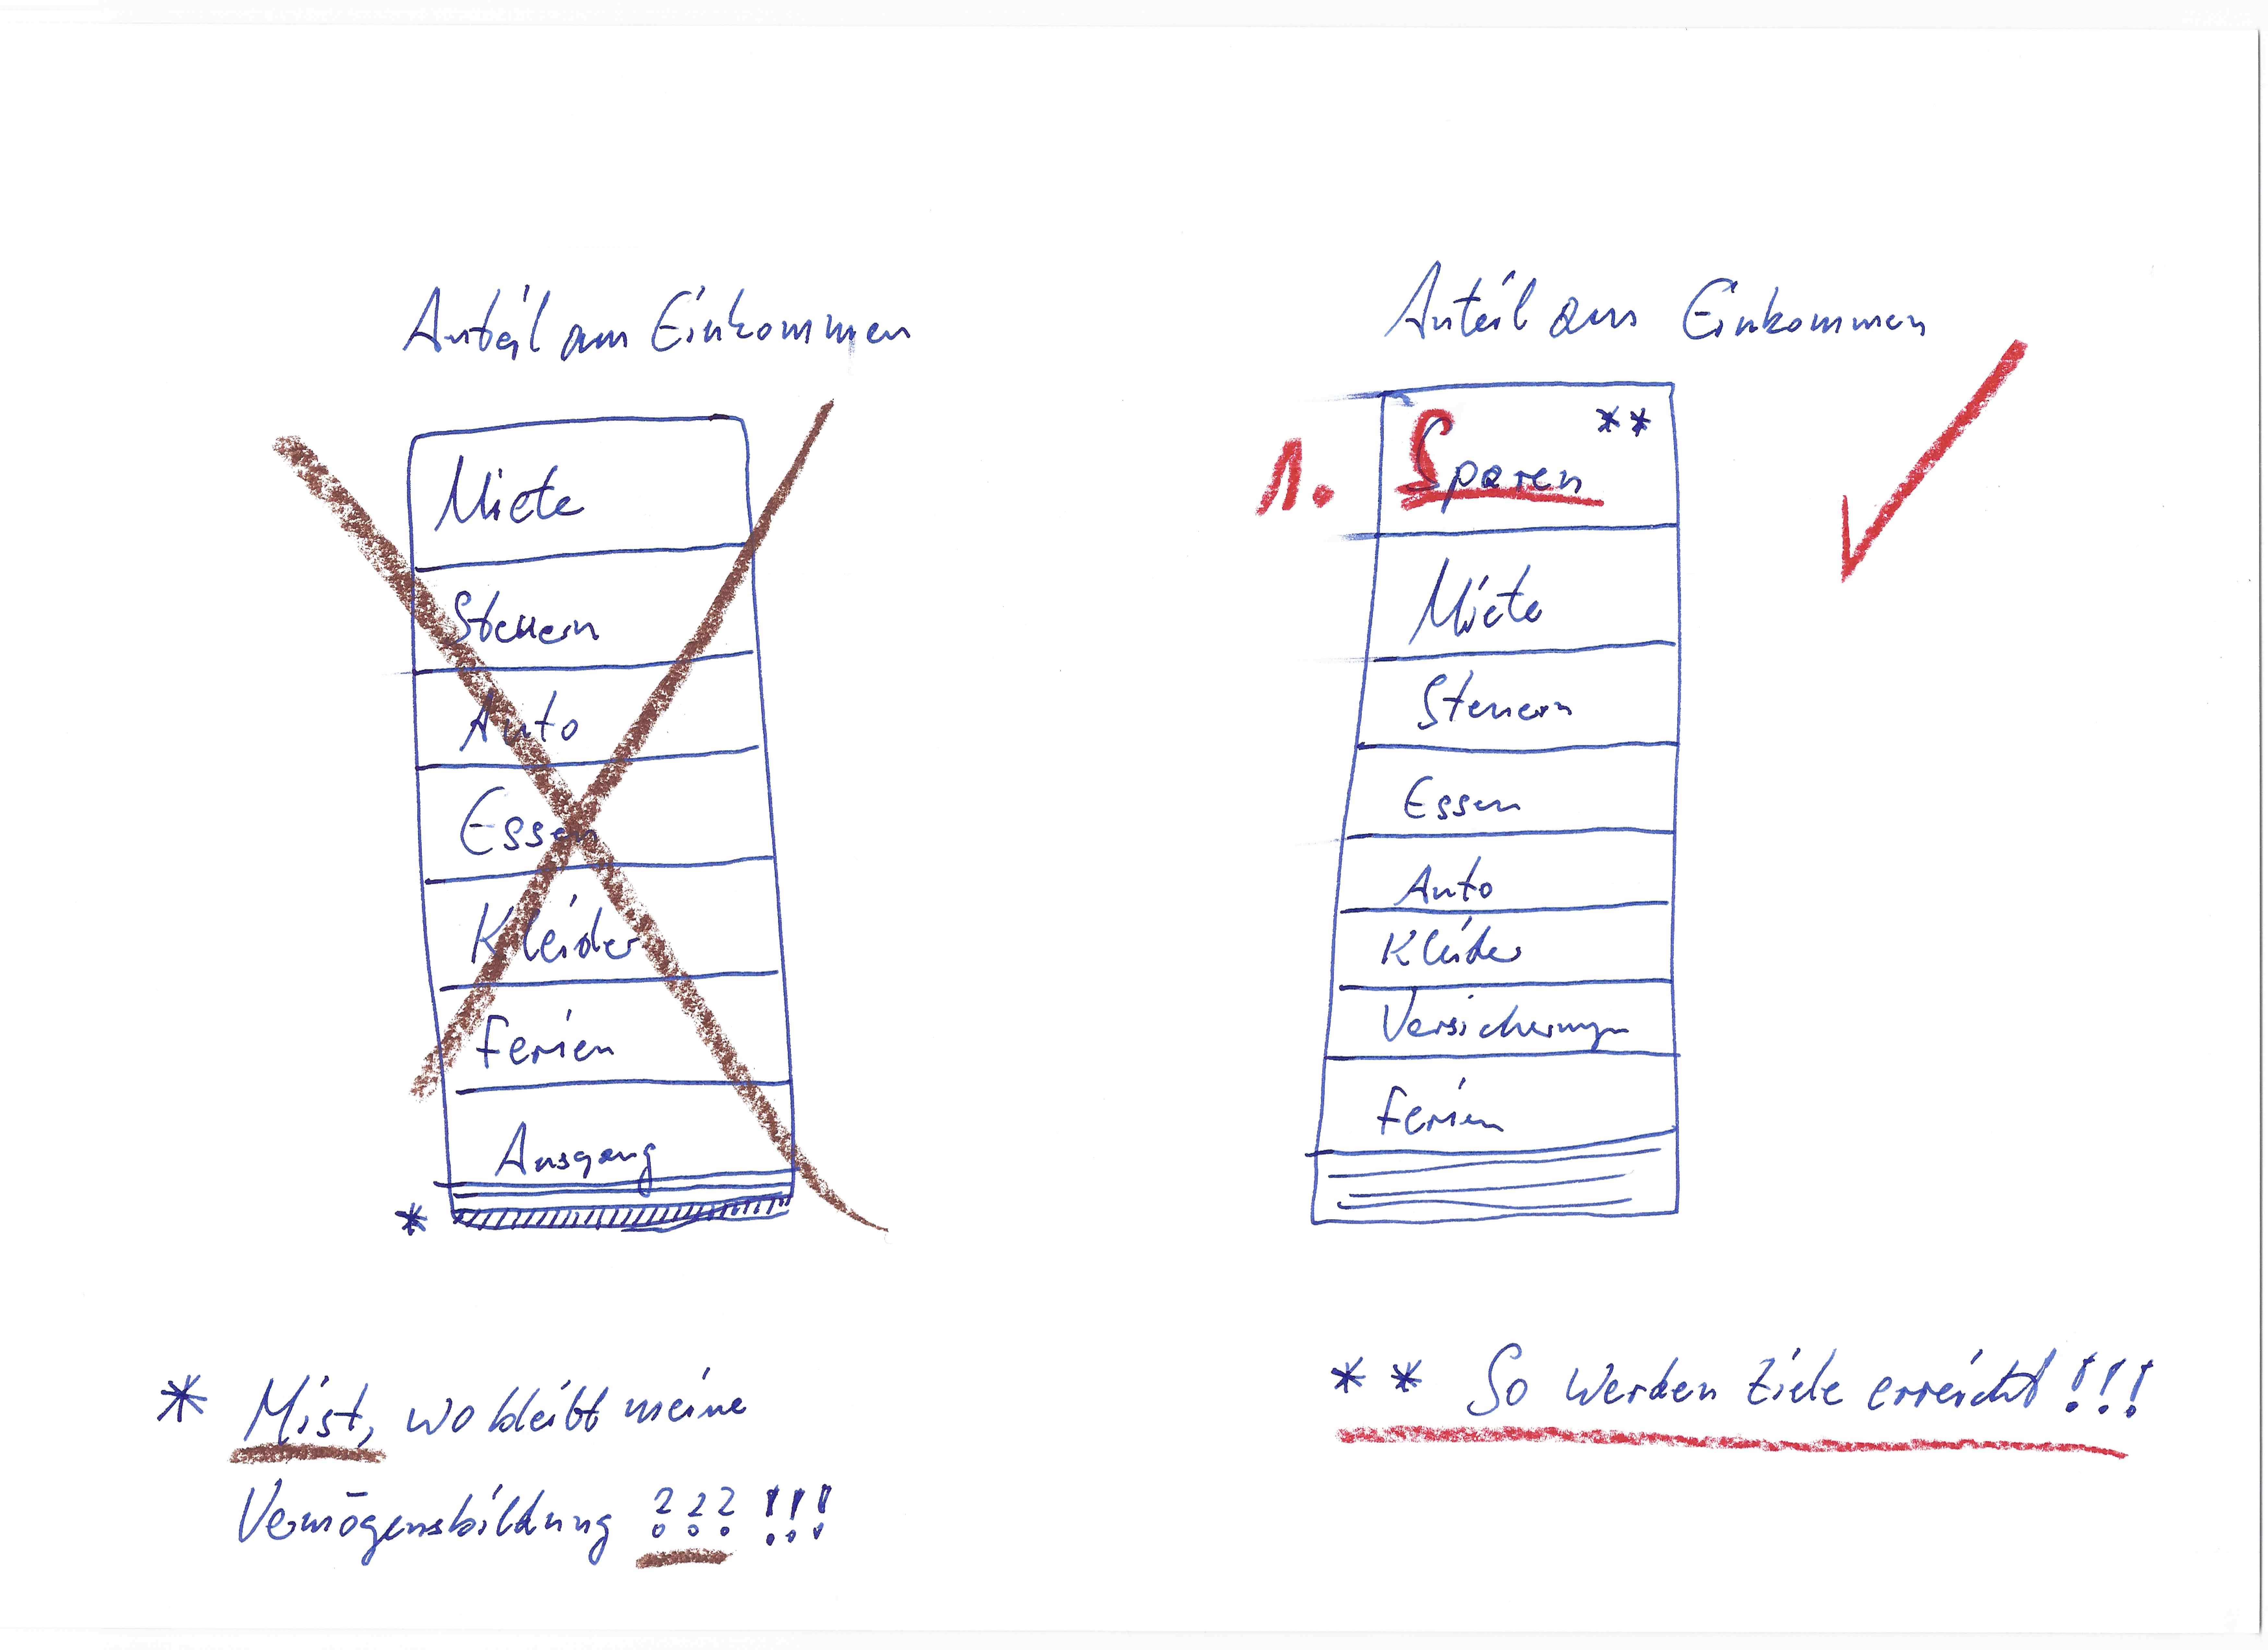 Anteil am Einkommen
Miete
Steuern
Auto
Essen
Kleider
Ferien
Ausgang
*
* Mist, wo bleibt meine
Vermögensbildung ??? !!!
Anteil am Einkommen
1. Sparen **
Miete
Steuern
Essen
Auto
Kleider
Versicherungen
Ferien
** So werden Ziele erreicht !!!